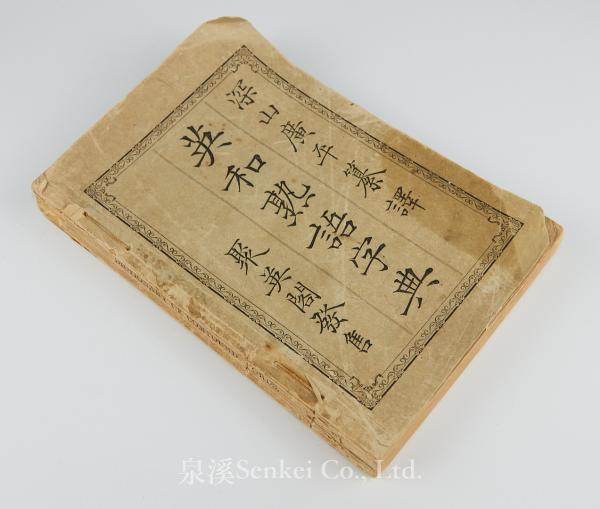 深山廣平纂譯
英和熟語字典
聚英閣發售
DICTIONARY OF COMPOUND WORDS
泉溪Senkei Co., Ltd.